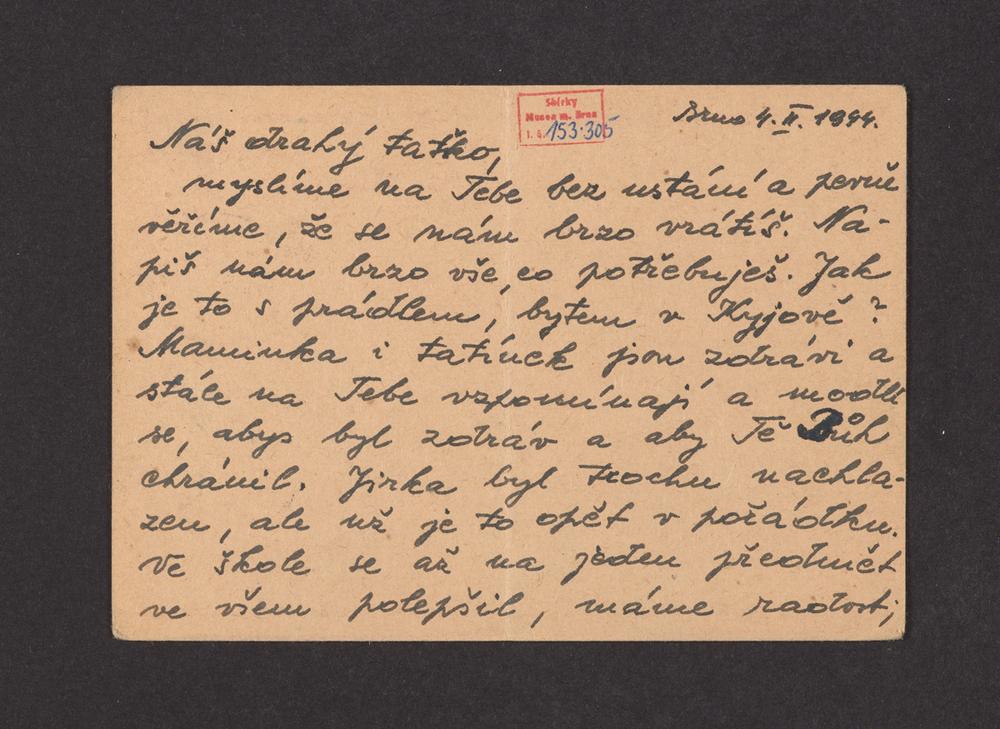 Sbírky
Musea m. Brna
i. č. 153.305
Brno 4. II. 1944.
Náš drahý taťko,
myslíme na Tebe bez ustání a pevně
věříme, že se nám brzo vrátíš. Na-
piš nám brzo vše, co potřebuješ. Jak
je to s prádlem, bytem v Kyjově?
Maminka i tatínek jsou zdrávi a
stále na Tebe vzpomínají a modlí
se, abys byl zdráv a aby Tě Bůh
chránil. Jirka byl trochu nachla-
zen, ale už je to opět v pořádku.
Ve škole se až na jeden předmět
ve všem polepšil, máme radost,